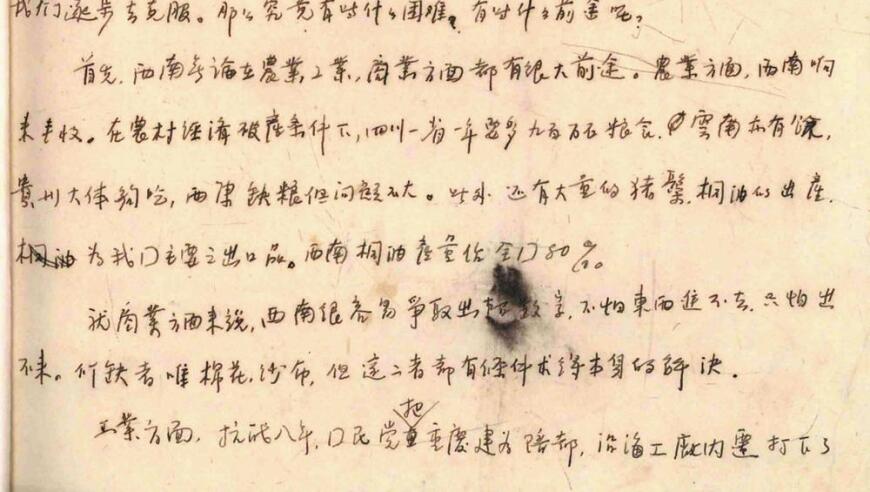 我们逐步去克服。那么究竟有些什么困难，有些什么前途呢？
首先，西南无论在農業工業，商業方面都有很大前途。農業方面，西南向
来丰收。在農村经濟破產条件下，四川一省一年要多九百万石粮食，雲南亦有馀，
貴州大体夠吃，西康缺粮但问题不大。此外还有大量的猪鬃，桐油的出産，
桐油为我囗主要之出口品。西南桐油産量佔全囗80%。
就商業方面来说，西南很容易爭取出超数字，不怕東西進不去，只怕出
不来。所缺者唯棉花，纱布，但這二者都有条件求得本身的解决。
工業方面，抗战八年，囗民党把重慶建为陪都，沿海工廠内遷打下了